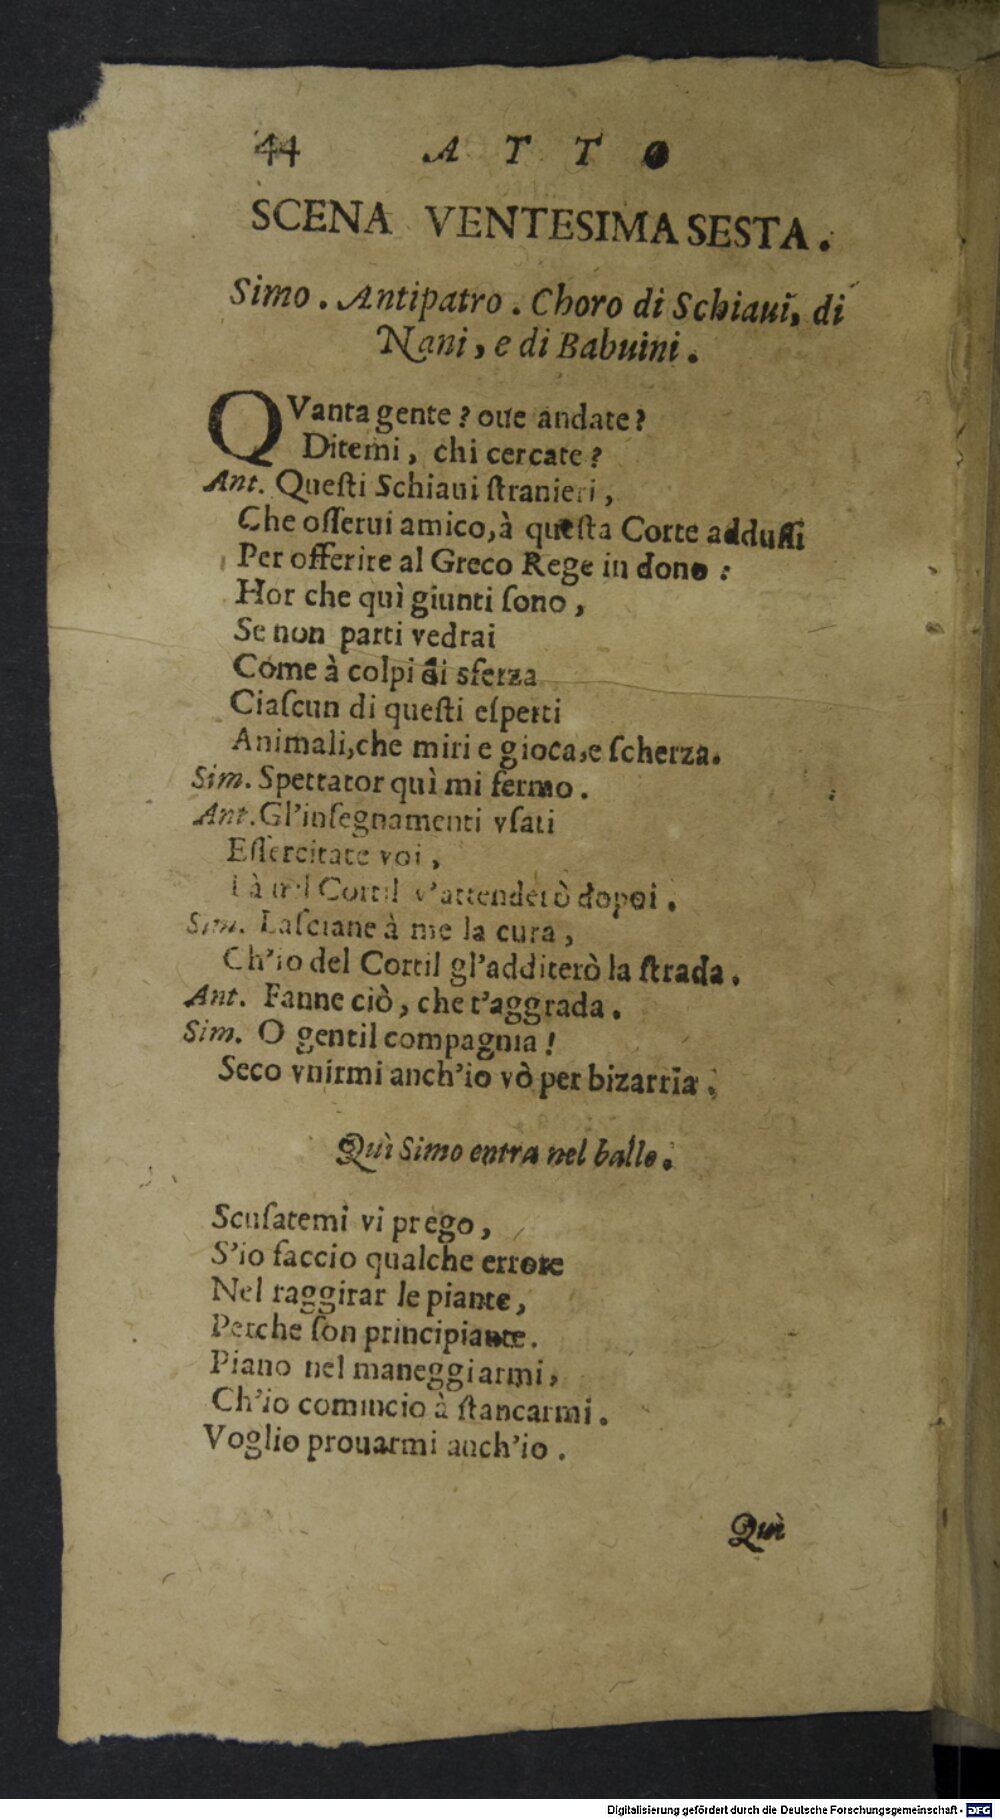 44 ATTO
SCENA VENTESIMA SESTA.
Simo. Antipatro. Choro di Schiaui, di
Nani, e di Babuini.
QVanta gente? oue andate?
Ditemi, chi cercate?
Ant. Queſti Schiaui ſtranieri,
Che oſſerui amico, à queſta Corte adduſſi
Per offerire al Greco Rege in dono:
Hor che quì giunti ſono,
Se non parti vedrai
Come à colpi di sferza
Ciaſcun di queſti eſperti
Animali, che miri e gioca, e ſcherza.
Sim. Spettator quì mi fermo.
Ant. Gl'inſegnamenti vſati
Eſſercitate voi,
Là nel Cortil v'attenderò dopoi.
Sim. Laſciane à me la cura,
Ch'io del Cortil gl'additerò la ſtrada.
Ant. Fanne ciò, che t'aggrada.
Sim. O gentil compagnia!
Seco vnirmi anch'io vò per bizarria.
Quì Simo entra nel ballo.
Scuſatemi vi prego,
S'io faccio qualche errore
Nel raggirar le piante,
Perche ſon principiante.
Piano nel maneggiarmi,
Ch'io comincio à ſtancarmi.
Voglio prouarmi anch'io.
Quì
Digitalisierung gefördert durch die Deutsche Forschungsgemeinschaft - DFG